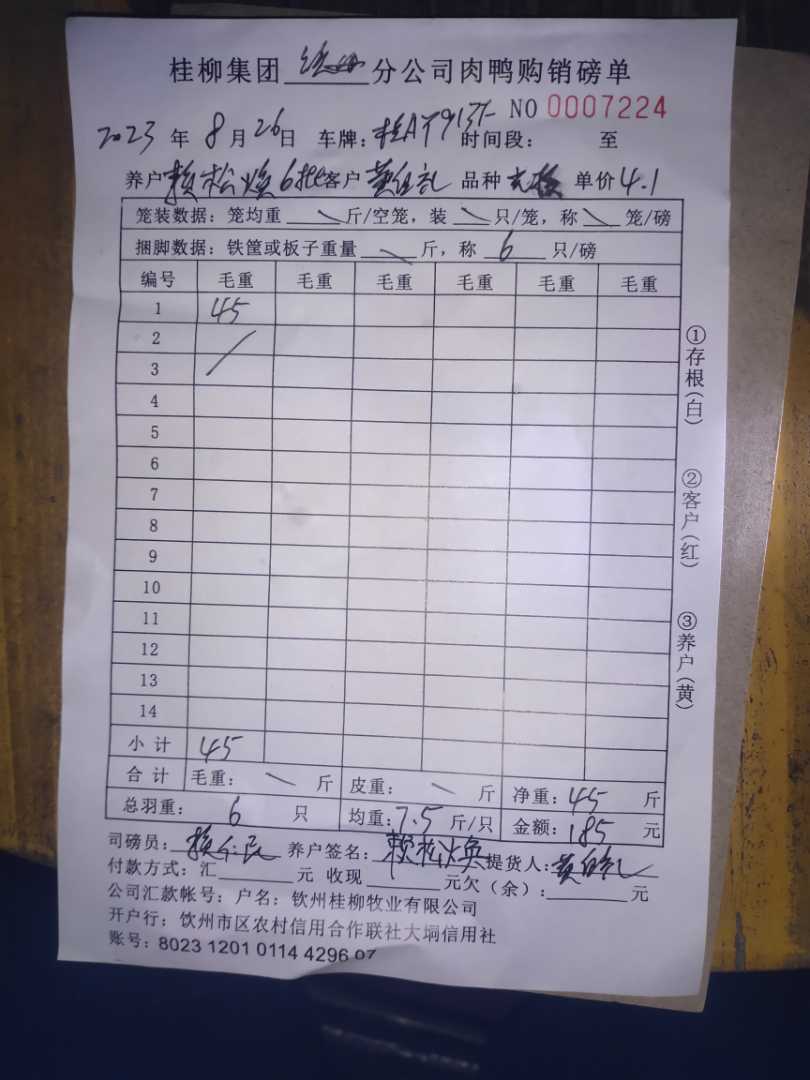 桂柳集团 分公司肉鸭购销磅单
NO 0007224
2023 年 8 月 26 日 车牌: 时间段: 至
养户 赖松焕 6批 客户 品种 单价 4.1
笼装数据: 笼均重 斤/空笼, 装 只/笼, 称 笼/磅
捆脚数据: 铁筐或板子重量 斤, 称 6 只/磅
编号 毛重 毛重 毛重 毛重 毛重 毛重
1 45
2
3
4
5
6
7
8
9
10
11
12
13
14
小计 45
合计 毛重: 斤 皮重: 斤 净重: 45 斤
总羽重: 6 只 均重: 7.5 斤/只 金额: 185 元
司磅员: 养户签名: 赖松焕 提货人:
付款方式: 汇 元 收现 元欠(余): 元
公司汇款帐号: 户名: 钦州桂柳牧业有限公司
开户行: 钦州市区农村信用合作联社大垌信用社
账号: 8023 1201 0114 4296 07
①存根(白)
②客户(红)
③养户(黄)